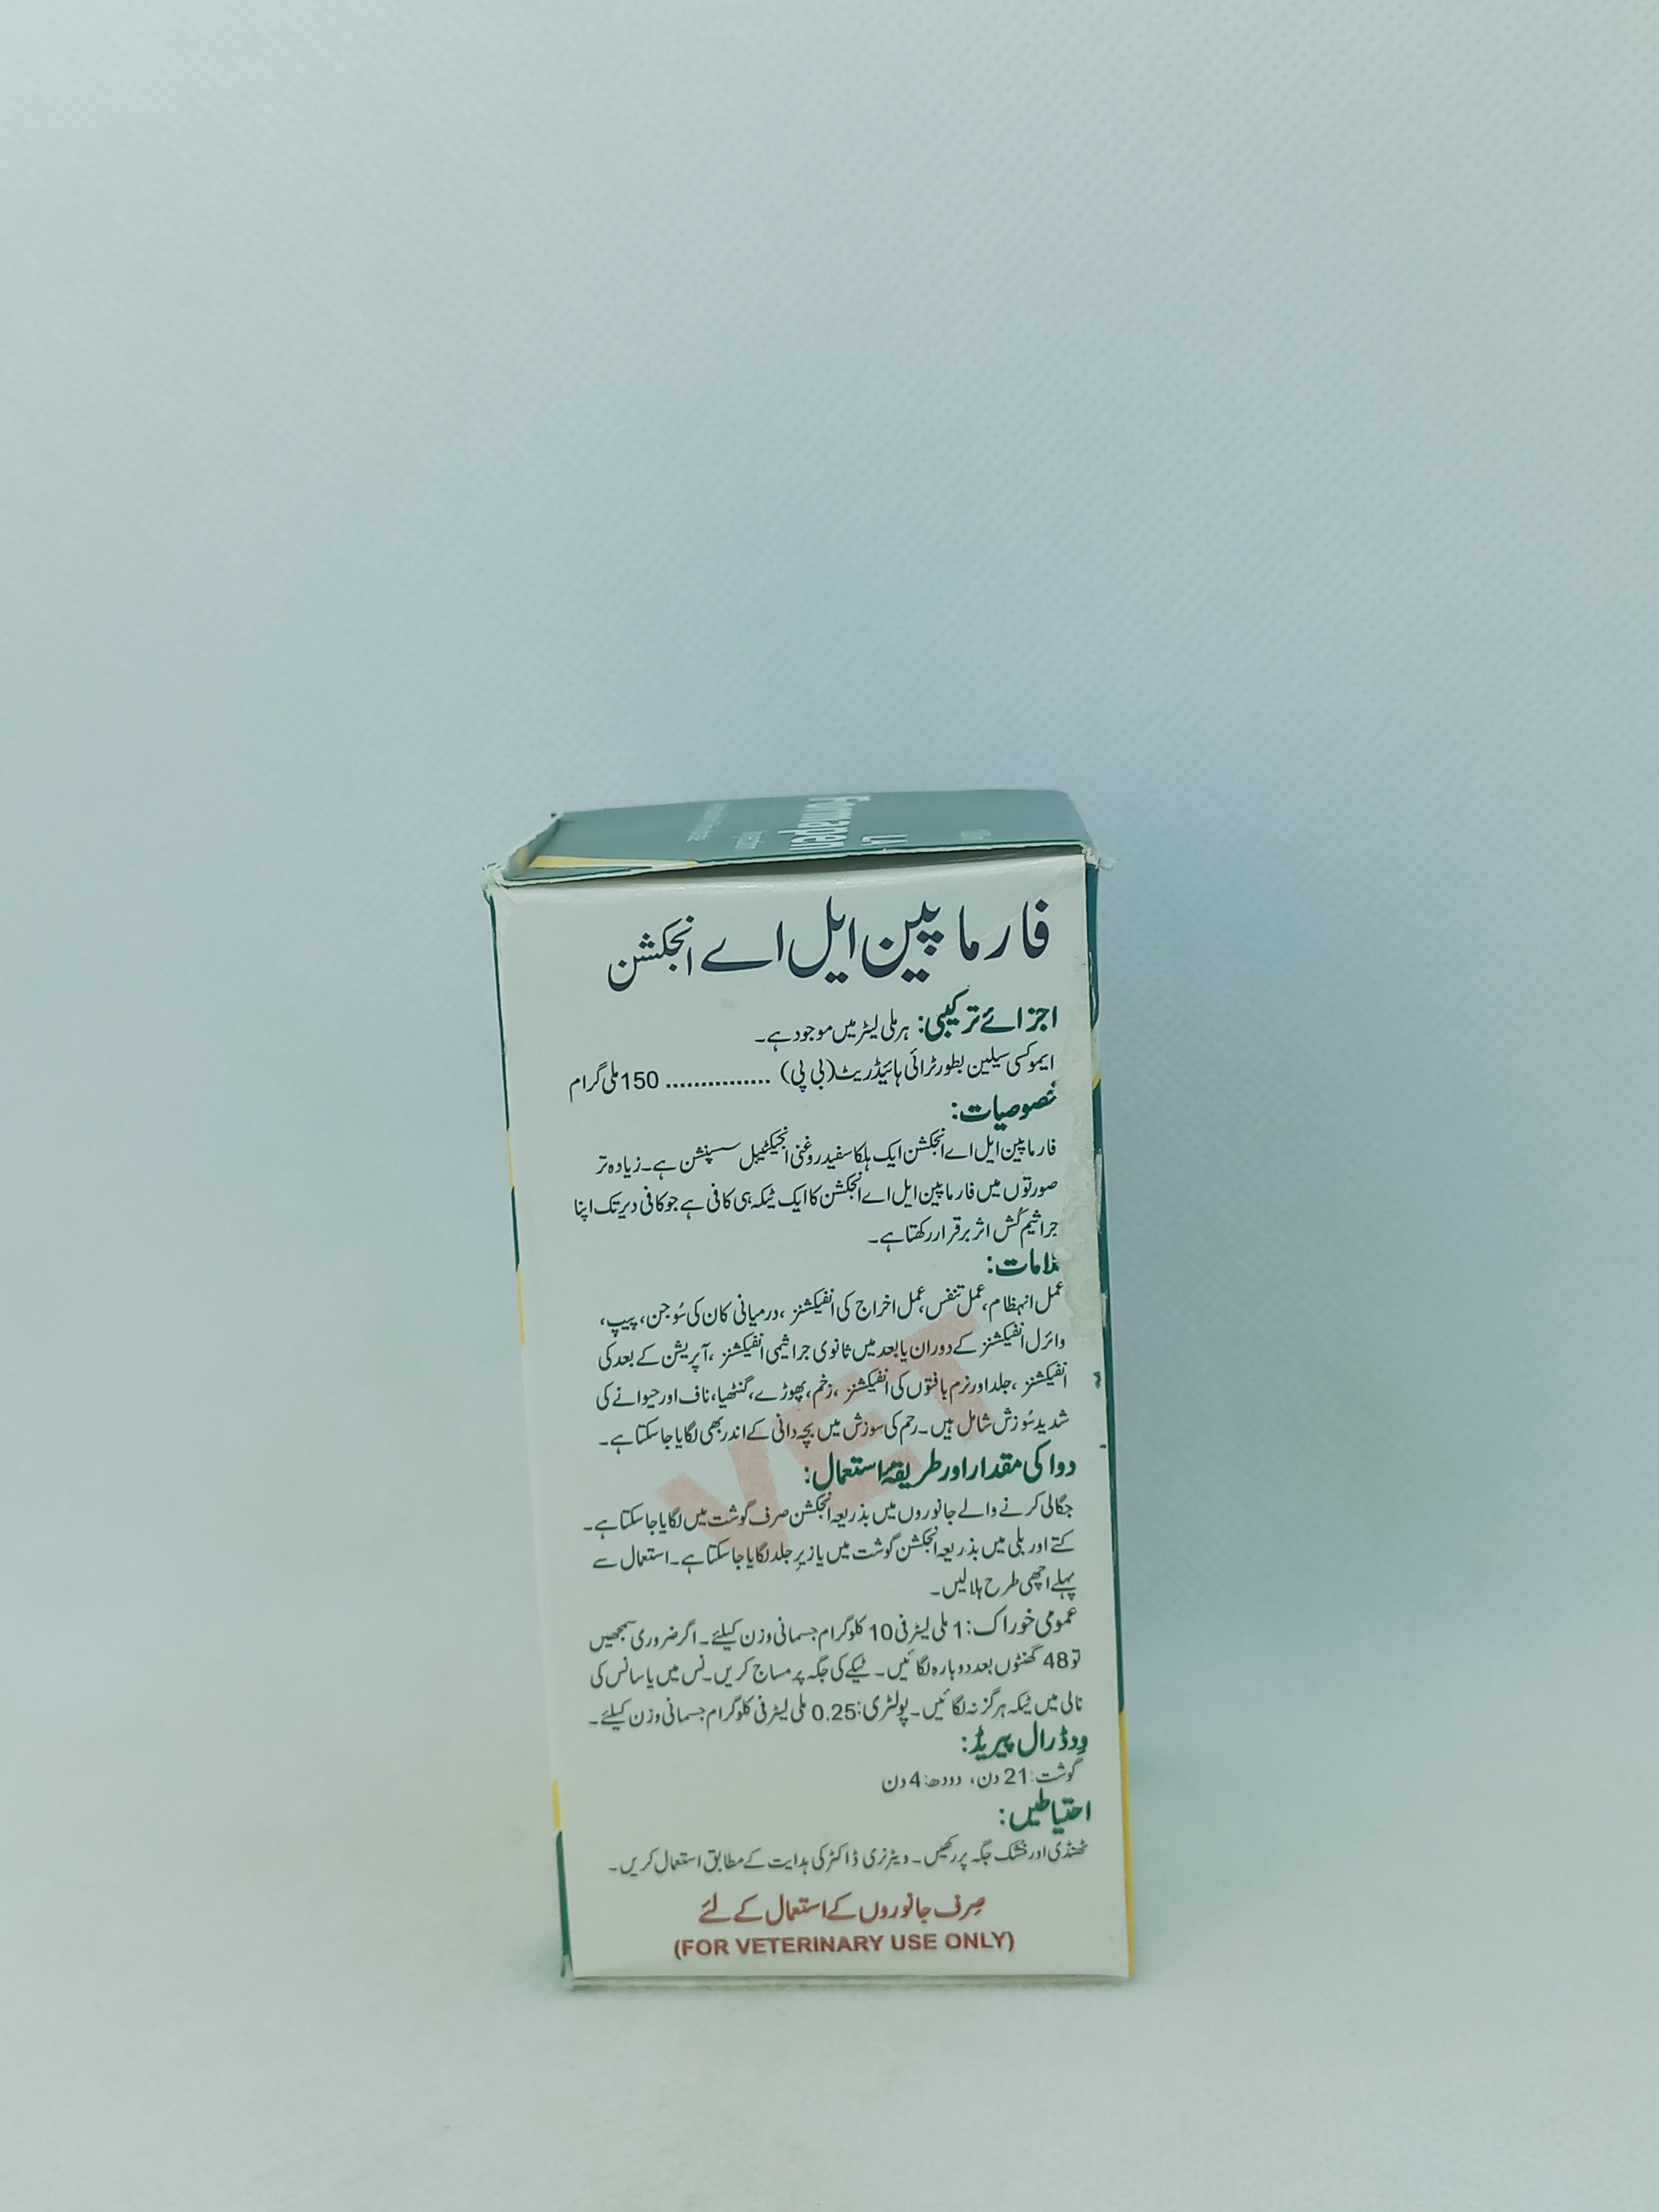 Farmapen
L.A
Injection
فارماپین ایل اے انجکشن
اجزائے ترکیبی: ہر ملی لیٹر میں موجود ہے۔
ایموکسی سیلین بطور ٹرائی ہائیڈریٹ (بی پی) ............... 150 ملی گرام
خصوصیات:
فارماپین ایل اے انجکشن ایک ہلکا سفید روغنی انجیکٹیبل سسپنشن ہے۔ زیادہ تر
صورتوں میں فارماپین ایل اے انجکشن کا ایک ٹیکہ ہی کافی ہے جو کافی دیر تک اپنا
جراثیم کُش اثر برقرار رکھتا ہے۔
عمل انہظام، عمل تنفس، عمل اخراج کی انفیکشنز، درمیانی کان کی سُوجن، پیپ،
وائرل انفیکشنز کے دوران یا بعد میں ثانوی جراثیمی انفیکشنز، آپریشن کے بعد کی
انفیکشنز، جلد اور نرم بافتوں کی انفیکشنز، زخم، پھوڑے، گنٹھیا، ناف اور حیوانے کی
شدید سُوزش شامل ہیں۔ رحم کی سوزش میں بچہ دانی کے اندر بھی لگایا جا سکتا ہے۔
VET
دوا کی مقدار اور طریقۂ استعمال:
جگالی کرنے والے جانوروں میں بذریعہ انجکشن صرف گوشت میں لگایا جا سکتا ہے۔
کتے اور بلی میں بذریعہ انجکشن گوشت میں یا زیرِ جلد لگایا جا سکتا ہے۔ استعمال سے
پہلے اچھی طرح ہلا لیں۔
عمومی خوراک: 1 ملی لیٹر فی 10 کلوگرام جسمانی وزن کیلئے۔ اگر ضروری سمجھیں
تو 48 گھنٹوں بعد دوبارہ لگائیں۔ ٹیکے کی جگہ پر مساج کریں۔ نس میں یا سانس کی
نالی میں ٹیکہ ہرگز نہ لگائیں۔ پولٹری: 0.25 ملی لیٹر فی کلوگرام جسمانی وزن کیلئے۔
وِدڈرال پیریڈ:
گوشت: 21 دن، دودھ: 4 دن
احتیاطیں:
ٹھنڈی اور خشک جگہ پر رکھیں۔ ویٹرنری ڈاکٹر کی ہدایت کے مطابق استعمال کریں۔
صِرف جانوروں کے استعمال کے لئے
(FOR VETERINARY USE ONLY)